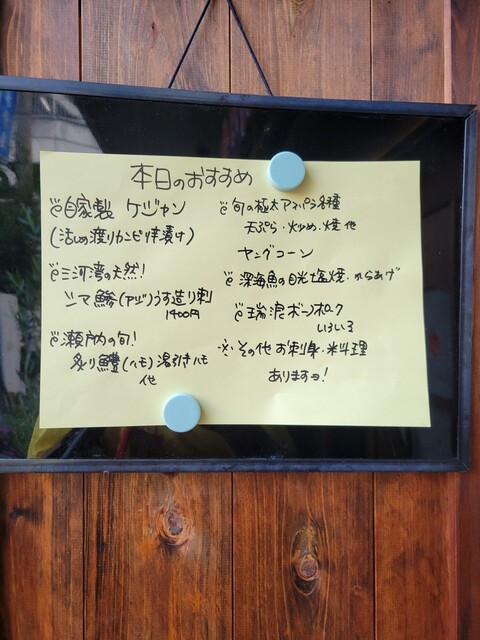 本日のおすすめ
自家製 ケジャン
(活〆の渡りガニピリ辛漬け)
三河湾の天然!
シマ鯵(アジ)うす造り刺
1400円
瀬戸内の旬!
炙り鱧(ハモ)湯引きハモ
他
旬の極太アスパラ各種
天ぷら・炒め・焼 他
ヤングコーン
深海魚の目光塩焼・からあげ
瑞浪ボーノポーク
いろいろ
※その他 お刺身・米料理
あります!